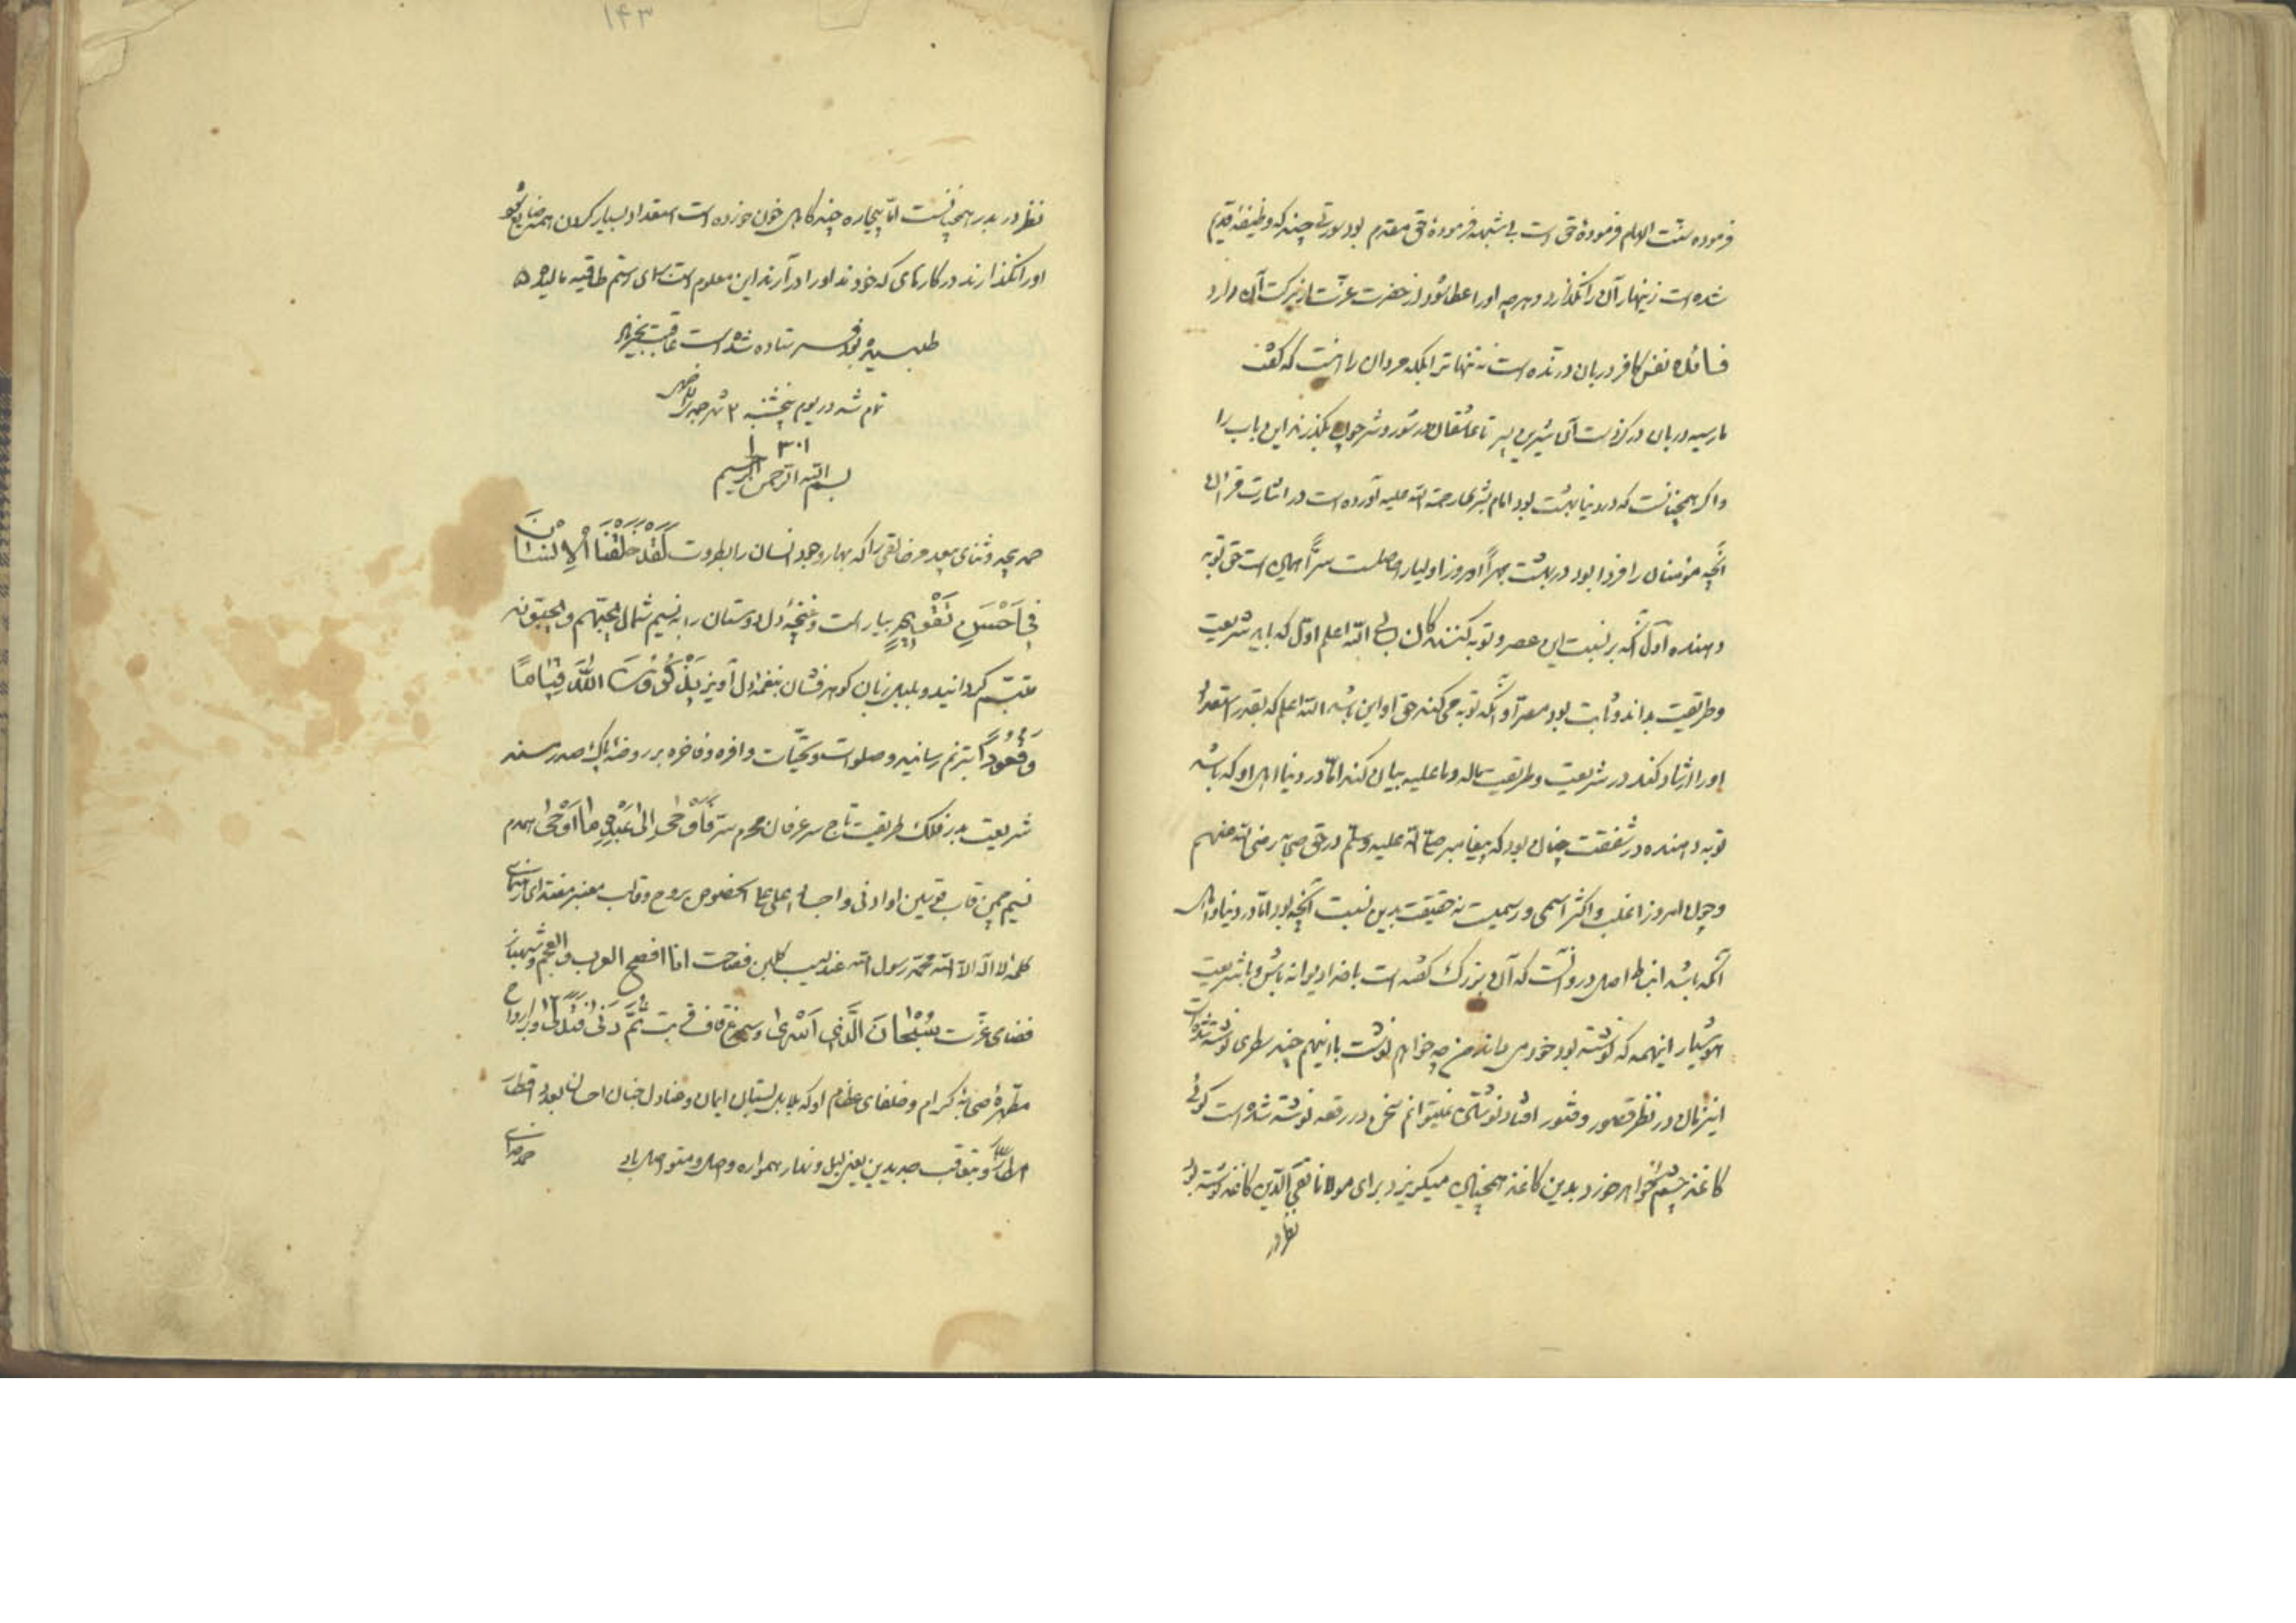 فرموده سنت الامام فرمودهٔ حق است بی شبهه فرمودهٔ حق مقدم بود سورتی چند که وظیفهٔ قدیم
شده است زینهار آن را نگذارد و هرچه او را عطا شود از حضرت عزت از برکت آن دارد
نفس کافر در بان درنده است نه تنها ترا بلکه مردان را
مار سیه در بان تا عاشقان در شور و شر چون بگذرند این باب را
و اگر همچنانست که در دنیا بهشت بود امام رحمة الله علیه آورده است در اشارت قرآن
آنچه مؤمنان را فردا بود در بهشت جهراً امروز اولیا را حاصلست سراً همین است حق توبه
دهنده اول آنکه بر نسبت این عصر و توبه کنندگان الله اعلم اول که باید شریعت
و طریقت بداند و ثابت بود مصر و آنکه توبه می کند حق او این باشد الله اعلم که بقدر استعداد
او را ارشاد کند در شریعت و طریقت ماله و ما علیه بیان کند اما در دنیا اهل او که باشد
توبه دهنده در شفقت چنان بود که پیغامبر صلی الله علیه وسلم در حق صحابه رضی الله عنهم
و چون امروز اغلب و اکثر اسمی و رسمیست نه حقیقت بدین نسبت آنچه بود اما در دنیا و اهل
آنکه باشد انبساط اصل درو آنست که آن بزرگ گفته است با خدا دیوانه باش و با شریعت
هوشیار اینهمه که نوشته بود خود می داند من چه خواهم نوشت با اینهم چند سطری نوشته شده است
این زمان در نظر قصور و فتور افتاد نوشتن نمیتوانم سخن در رقعه نوشته شده است گوئی
کاغذ چشم خواهد خورد بدین کاغذ همچنان میگریزد برای مولانا تقی الدین کاغذ نوشته بود
نظر در
۱۴۳
نظر در بدر همچنانست اما بیچاره چند گاهی خون خورده است استعداد بسیار کردن همه ضایع شود
او را نگذارند در کارهای که خودند او را در آرند این معلوم است
طلبیده بود فرستاده شده است عاقبت بخیر باد
تمام شد در یوم پنجشنبه ۳ شهر
۱۳۰۱
بسم الله الرحمن الرحیم
حمد بیحد و ثنای بیعد مر خالقی را که بهار وجود انسان را بطروت لَقَدْ خَلَقْنَا الْاِنْسَانَ
فِی اَحْسَنِ تَقْوِیمٍ بیاراست و غنچهٔ دل دوستان را به نسیم شمال یحبهم و یحبونه
متبسم گردانید و بلبل زبان گوهرفشان بنغمهٔ دل آویز یَذْکُرُونَ اللّٰهَ قِیَامًا
وَقُعُودًا بترنم رسانید و صلوات و تحیّات وافره و فاخره بر روضهٔ پاک صدر مسند
شریعت بدر فلک طریقت تاج سر عرفان محرم سرّ فَاَوْحٰی اِلٰی عَبْدِهِ مَا اَوْحٰی همدم
نسیم چمن قاب قوسین او ادنی علی الخصوص بروح و قالب معنبر مقتدای
کلمهٔ لا اله الا الله محمد رسول الله عندلیب گلبن فصاحت انا افصح العرب والعجم و شهباز
فضای عزت سُبْحَانَ الَّذِی اَسْرٰی و سیمرغ قاف قربت ثُمَّ دَنٰی فَتَدَلّٰی و بر ارواح
مطهرهٔ صحابهٔ کرام و خلفای عظام او که بلابل بستان ایمان و عنادل جنان احسان بعدد قطرات
امطار و بتعاقب جدیدین یعنی لیل و نهار همواره واصل و متواصل باد